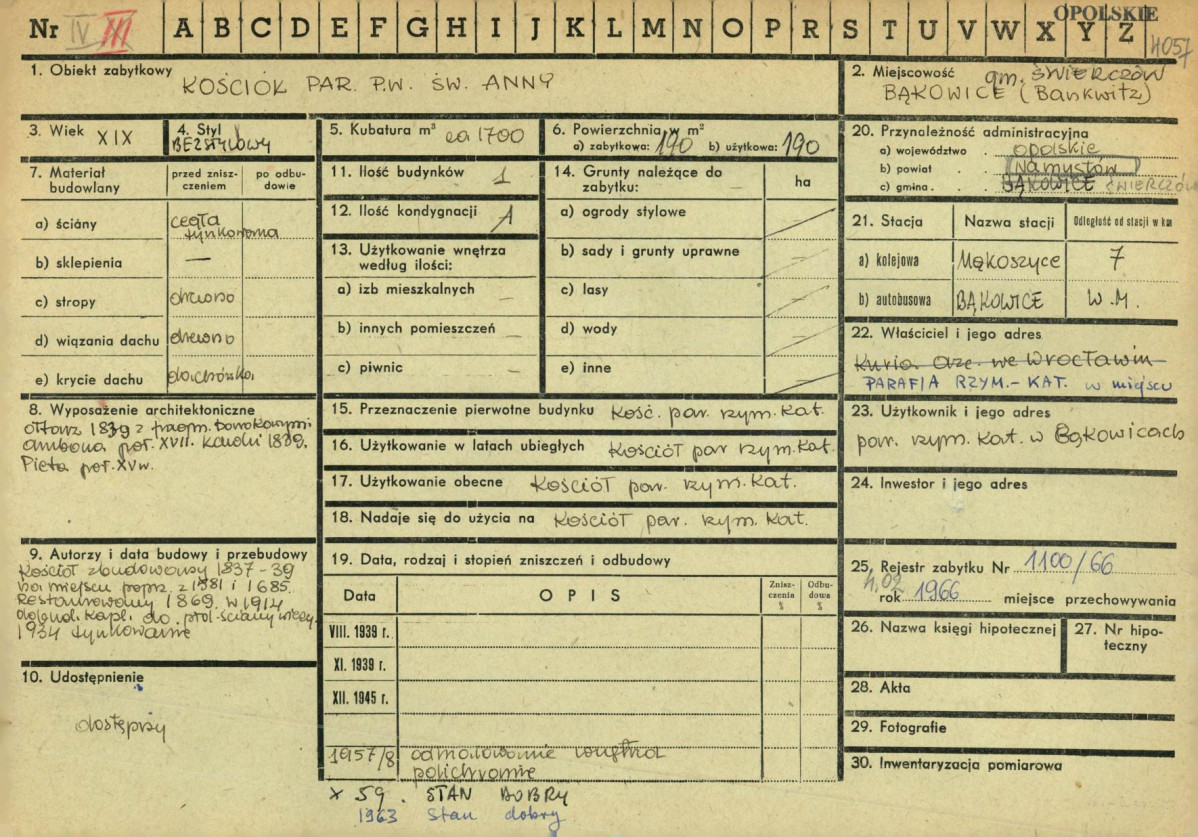 OPOLSKIE
Nr IV III A B C D E F G H I J K L M N O P R S T U V W X Y Z 4057
1. Obiekt zabytkowy
KOŚCIÓŁ PAR. P.W. ŚW. ANNY
2. Miejscowość gm. ŚWIERCZÓW
BĄKOWICE (Bankwitz)
3. Wiek XIX
4. Styl
BEZSTYLOWY
5. Kubatura m³ ca 1700
6. Powierzchnia w m²
a) zabytkowa: 190 b) użytkowa: 190
7. Materiał budowlany
przed znisz-
czeniem
po odbu-
dowie
a) ściany cegła
tynkowana
b) sklepienia —
c) stropy drewno
d) wiązania dachu drewno
e) krycie dachu dachówka
8. Wyposażenie architektoniczne
ołtarz 1839 z fragm. barokowymi
ambona poł. XVII.
1839.
Pieta poł. XV w.
9. Autorzy i data budowy i przebudowy
Kościół zbudowany 1837-39
na miejscu popr. z 1581 i 1685.
Restaurowany 1869. W 1914
dobud. kapl. do
1934 tynkowanie
10. Udostępnienie
dostępny
11. Ilość budynków 1
12. Ilość kondygnacji 1
13. Użytkowanie wnętrza
według ilości:
a) izb mieszkalnych —
b) innych pomieszczeń —
c) piwnic —
14. Grunty należące do
zabytku: — ha
a) ogrody stylowe
b) sady i grunty uprawne —
c) lasy —
d) wody —
e) inne
15. Przeznaczenie pierwotne budynku Kość. par. rzym. kat.
16. Użytkowanie w latach ubiegłych Kościół par rzym. kat.
17. Użytkowanie obecne Kościół par. rzym. kat.
18. Nadaje się do użycia na Kościół par. rzym. kat.
19. Data, rodzaj i stopień zniszczeń i odbudowy
Data OPIS
Znisz-
czenia
%
Odbu-
dowa
%
VIII. 1939 r.
XI. 1939 r.
XII. 1945 r.
1957/8 odmalowanie wnętrza
polichromie
X 59. STAN DOBRY
1963 Stan dobry
20. Przynależność administracyjna
a) województwo opolskie
b) powiat Namysłów
c) gmina BĄKOWICE ŚWIERCZÓW
21. Stacja Nazwa stacji Odległość od stacji w km
a) kolejowa Mąkoszyce 7
b) autobusowa BĄKOWICE W.M.
22. Właściciel i jego adres
Kuria Arc. we Wrocławiu
PARAFIA RZYM.-KAT. w miejscu
23. Użytkownik i jego adres
par. rzym. kat. w Bąkowicach
24. Inwestor i jego adres
25. Rejestr zabytku Nr 1100/66
4.02 rok 1966 miejsce przechowywania
26. Nazwa księgi hipotecznej
27. Nr hipo-
teczny
28. Akta
29. Fotografie
30. Inwentaryzacja pomiarowa